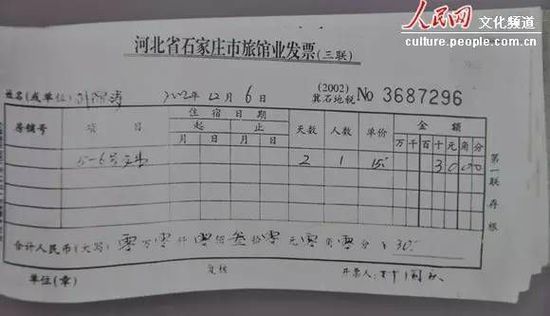 人民网 文化频道
culture.people.com.cn
河北省石家庄市旅馆业发票(三联)
姓名(或单位) 2002年12月6日 (2002)冀石地税 No 3687296
房铺号 项目 住宿日期 天数 人数 单价 金额
起 止 万 千 百 十 元 角 分
月 日 月 日
5-6号 2 1 15 3 0 0 0
第一联 存根
合计人民币(大写) 零万零仟零佰叁拾零元零角零分 ¥30
单位(章) 复核 开票人: